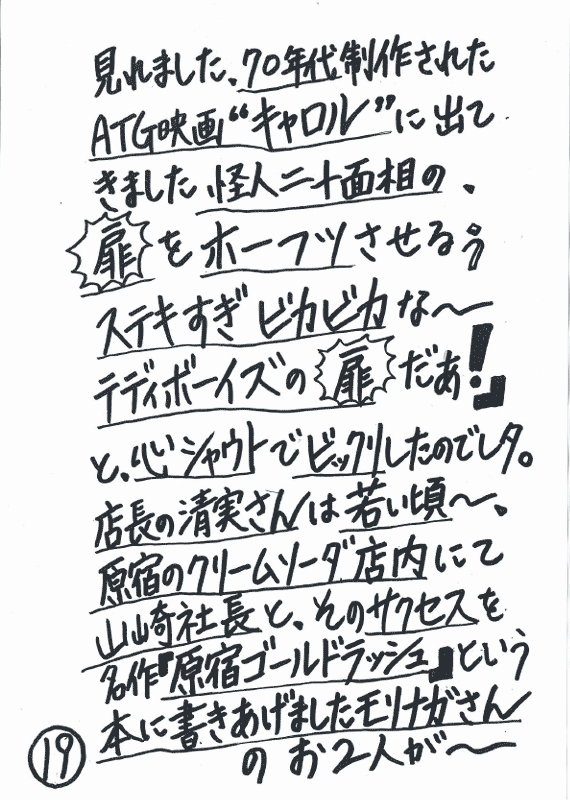 見れました、70年代制作された
ATG映画“キャロル”に出て
きました怪人二十面相の、
扉をホーフツさせるぅ
ステキすぎピカピカな〜
テディボーイズの扉だぁ！』
と、心シャウトでビックリしたのでしタ。
店長の清実さんは若い頃〜、
原宿のクリームソーダ店内にて
山崎社長と、そのサクセスを
名作『原宿ゴールドラッシュ』という
本に書きあげましたモリナガさん
のお2人が〜
19